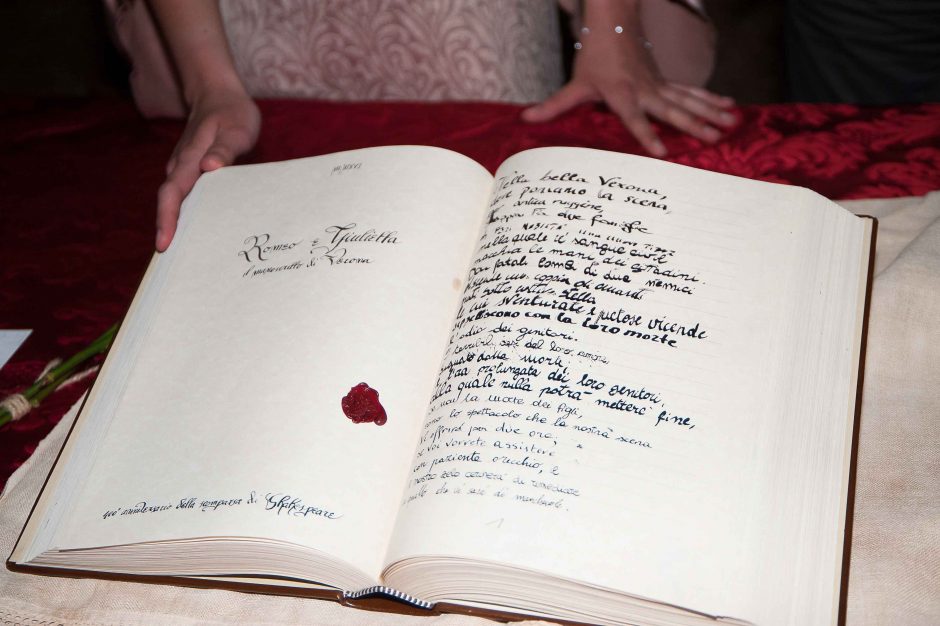 MMXVI
Romeo e Giulietta
il manoscritto di Verona
400° anniversario della scomparsa di Shakespeare
Nella bella Verona,
dove poniamo la scena,
antica ruggine,
due famiglie
PARI NOBILTÀ una nuova
nella quale il sangue civile
macchia le mani dei cittadini.
Dai fatali lombi di due nemici
discende una coppia di amanti
nati sotto cattiva stella
le cui sventurate e pietose vicende
seppelliscono con la loro morte
l'odio dei genitori.
del loro amore
segnato dalla morte
l'ira prolungata dei loro genitori,
alla quale nulla potrà mettere fine,
se non la morte dei figli,
sono lo spettacolo che la nostra scena
vi offrirà per due ore;
se voi vorrete assistere
con paziente orecchio,
nostro zelo cercherà di rimediare
quello che ci sarà di manchevole.
1